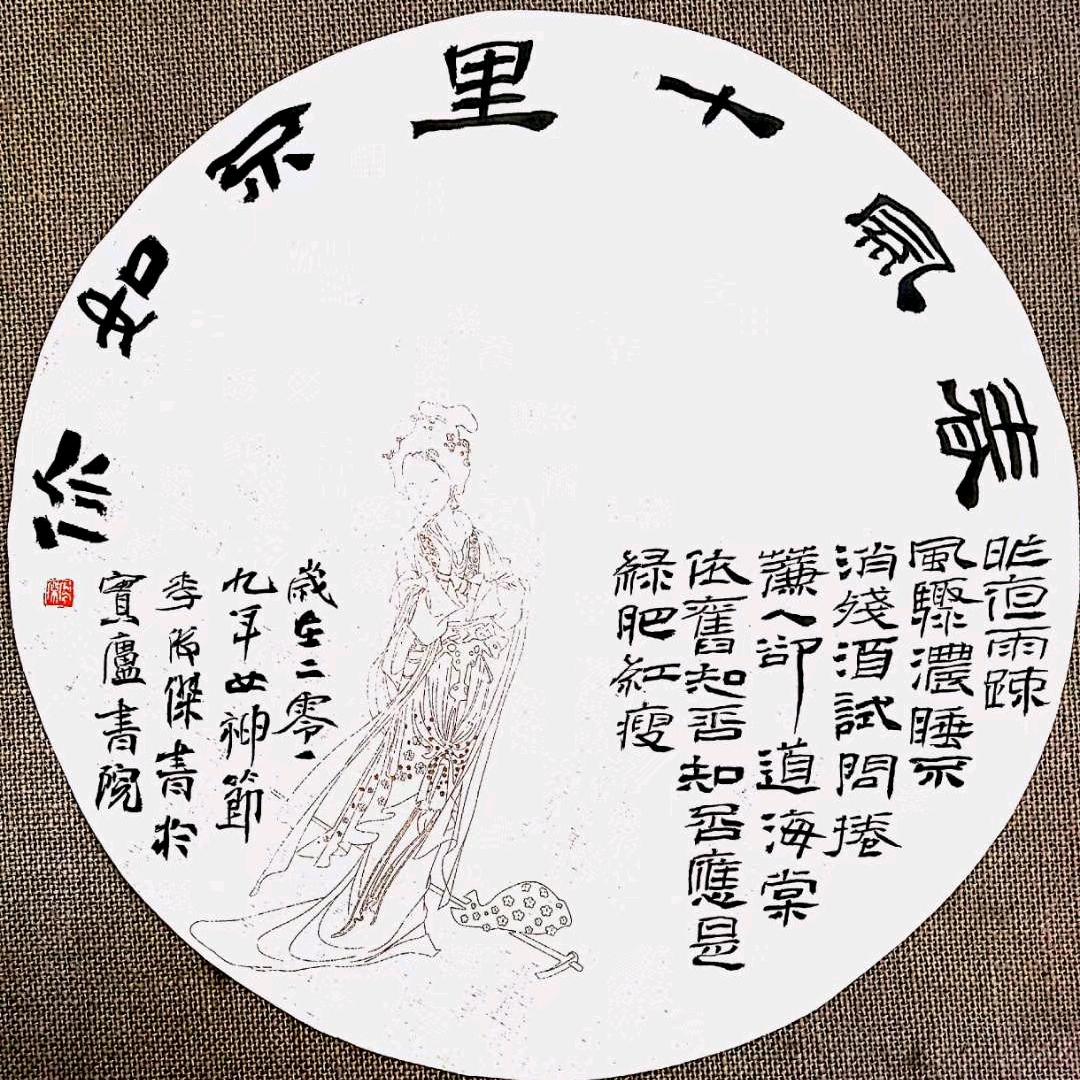 春風十里不如你
昨夜雨踈
風驟濃睡不
消殘酒試問捲
簾人卻道海棠
依舊知否知否應是
緑肥紅瘦
歲在二零一
九年女神節
李傑書於
實廬書院